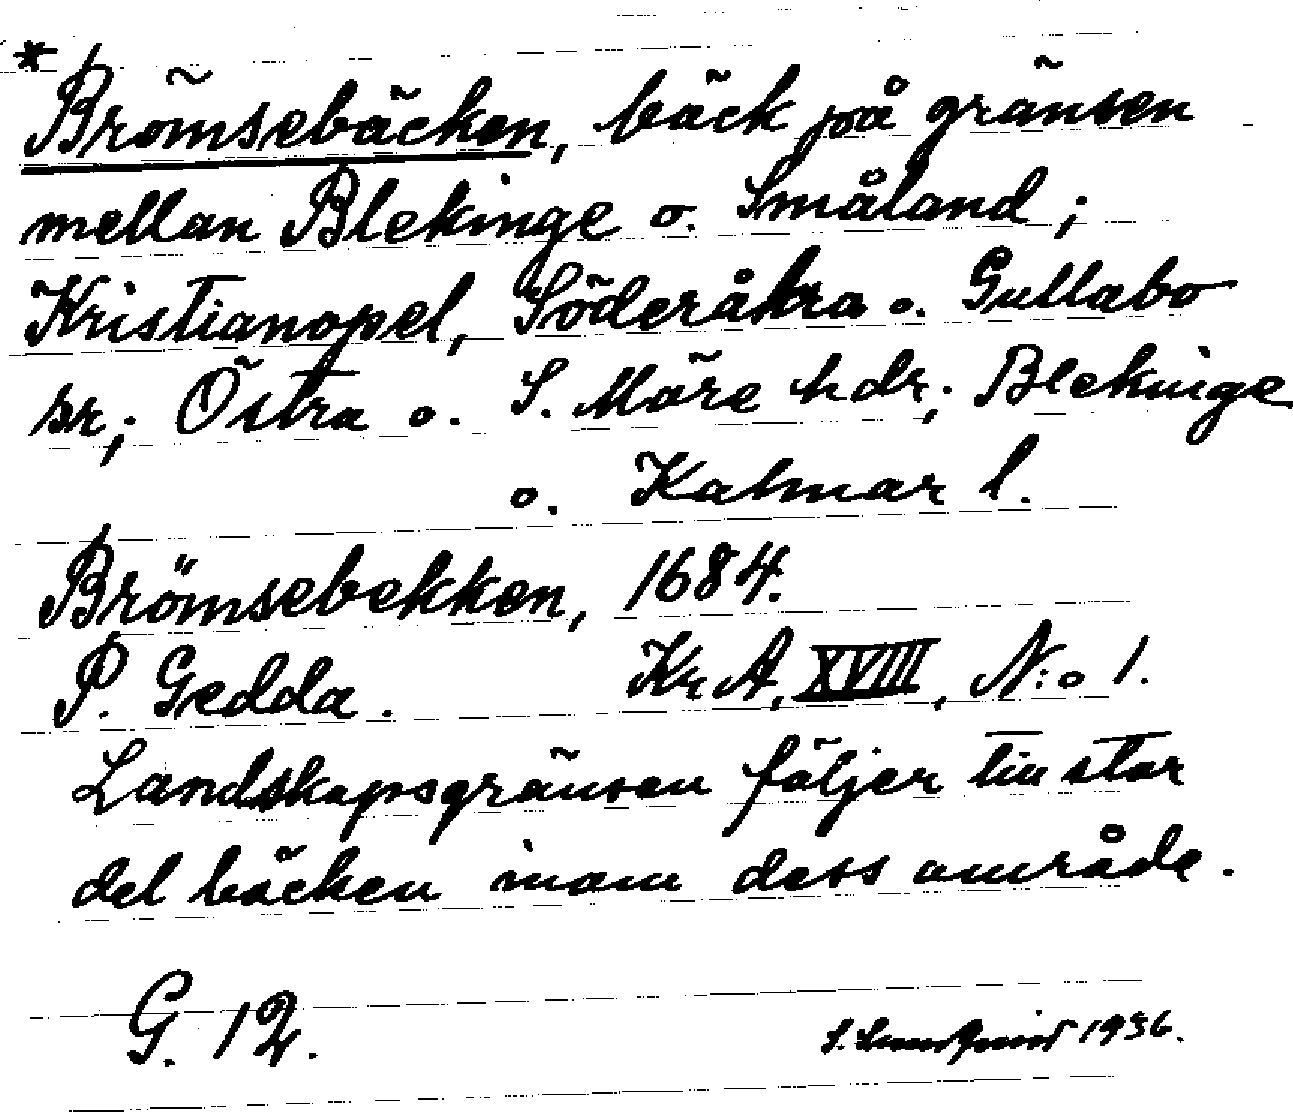 * Brömsebäcken, bäck på gränsen
mellan Blekinge o. Småland;
Kristianopel, Söderåkra o. Gullabo
sr; Östra o. S. Möre hdr; Blekinge
o. Kalmar l.
Brömsebekken, 1684.
P. Gedda. Kr A, XVIII, N:o 1.
Landskapsgränsen följer till stor
del bäcken inom dess område.
G. 12.
1936.